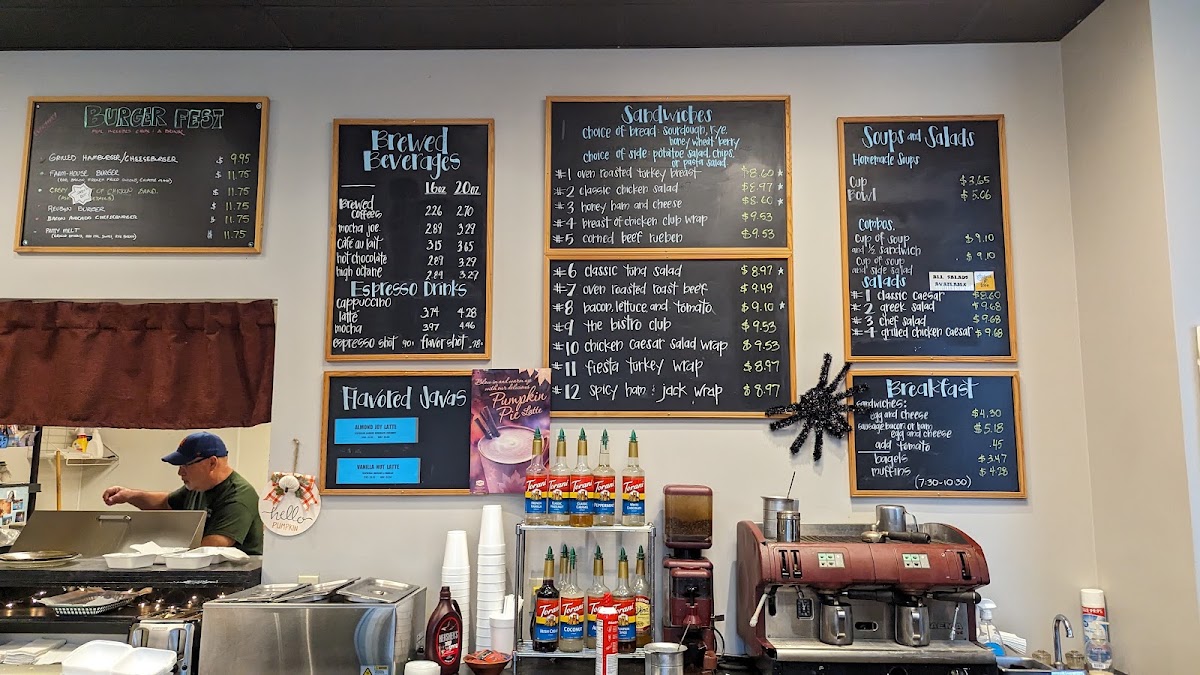 BURGER FEST
GRILLED HAMBURGER/CHEESEBURGER $ 9.95
FARM-HOUSE BURGER $ 11.75
$ 11.75
REUBEN BURGER $ 11.75
BACON AVOCADO CHEESEBURGER $ 11.75
PATTY MELT $ 11.75
Brewed
Beverages
16oz 20oz
Brewed
Coffees 2.26 2.70
mocha joe 2.89 3.29
Café au lait 3.15 3.65
hot chocolate 2.89 3.29
high octane 2.84 3.29
Espresso Drinks
cappuccino
latte 3.74 4.28
mocha 3.97 4.46
espresso shot .90¢ flavor shot .78¢
Flavored Javas
ALMOND JOY LATTE
VANILLA NUT LATTE
Relax in and warm up
with our delicious
Pumpkin
Pie Latte
Sandwiches
choice of bread: sourdough, rye,
honey wheat berry
choice of side: potatoe salad, chips,
or pasta salad
#1 oven roasted turkey breast $8.60 *
#2 classic chicken salad $8.97 *
#3 honey ham and cheese $8.60 *
#4 breast of chicken club wrap $9.53
#5 corned beef rueben $9.53
#6 classic tuna salad $8.97 *
#7 oven roasted roast beef $9.49
#8 bacon, lettuce, and tomato $9.10 *
#9 the bistro club $9.53
#10 chicken caesar salad wrap $9.53
#11 fiesta turkey wrap $8.97
#12 spicy ham & jack wrap $8.97
Soups and Salads
Homemade Soups
Cup $3.65
Bowl $5.06
Combos:
cup of soup $9.10
and ½ sandwich
cup of soup $9.10
and side salad
ALL SALADS
AVAILABLE
salads
#1 classic caesar $8.60
#2 greek salad $9.68
#3 chef salad $9.68
#4 grilled chicken caesar $9.68
Breakfast
sandwiches:
egg and cheese $4.30
sausage, bacon, or ham, $5.18
egg and cheese
add tomato .45
bagels $3.47
muffins $4.28
(7:30-10:30)
hello
PUMPKIN
Torani
Torani
Torani
Torani
PEPPERMINT
Torani
Torani
IRISH CREAM
Torani
COCONUT
Torani
Torani
HERSHEY'S